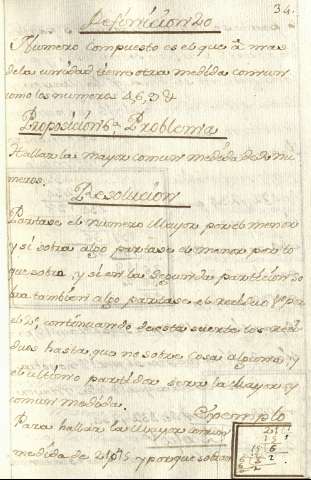 34.
Definicion 20
Numero Compuesto es el que â mas
de la unidad tiene otra medida comun
como los numeros 4, 6, 9 &
Proposicion 6ª Problema
Hallar la mayor comun medida de dos nu
meros.
Resolucion
Partase el numero Mayor por el menor
y si sobra algo partase el menor por lo
que sobra, y si en la segunda particion so
bra tambien algo partase el residuo 1º por
el 2º, continuando de esta suerte los resi
duos hasta que no sobre cosa alguna, y
el ultimo partidor sera la Mayor
comun medida.
Exemplo
Para hallar la Mayor comun
medida de 21 y 15 y porque sobran